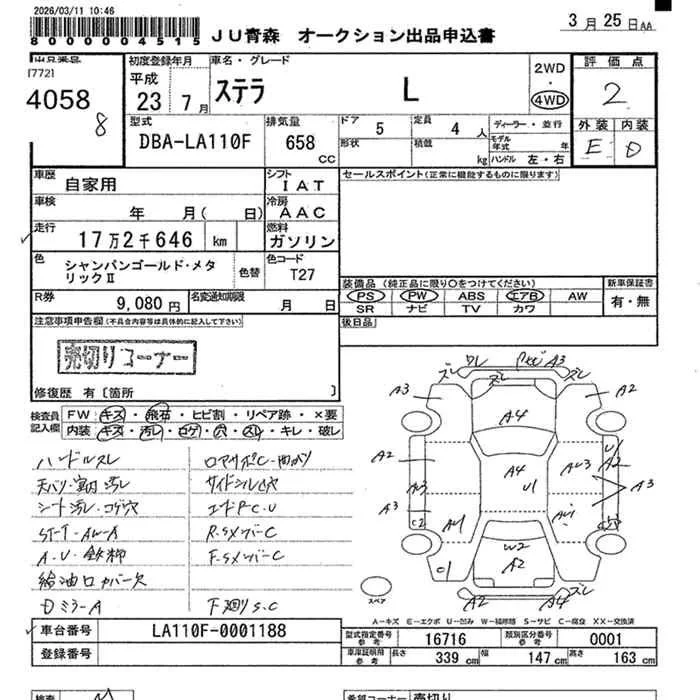 2026/03/11 10:46
8000004515
JU青森 オークション出品申込書
3月25日AA
出品番号
[772]
4058
8
初度登録年月
平成
23 7月
車名・グレード
ステラ L
2WD
・
4WD
評価点
2
外装 内装
E D
型式
DBA-LA110F
排気量
658
CC
ドア 5
定員 4 人
形状
積載 kg
ディーラー・並行
モデル年式 年
ハンドル 左・右
車歴 自家用
シフト IAT
セールスポイント(正常に機能するものに限ります)
車検 年 月( 日)
冷房 AAC
走行 17万2千646 km
燃料 ガソリン
色 シャンパンゴールド・メタリックⅡ
色替
色コード T27
装備品 (純正品に限り○をつけてください)
PS PW ABS エアB AW
SR ナビ TV カワ
新車保証書
有・無
R券 9,080円
名変通知期限 月 日
後日品
注意事項申告欄(不具合内容等は具体的に記入して下さい)
売切りコーナー
修復歴 有〔箇所 〕
検査員記入欄
FW キズ・飛石・ヒビ割・リペア跡・×要
内装 キズ・汚レ・コゲ・穴・スレ・キレ・破レ
ハンドルスレ
天バリ・室内汚レ
シート汚レ・コゲ穴
給油口カバー欠
DミラーA
サイドシルC穴
R.SメンバーC
F.SメンバーC
F廻りS.C
ズレ ワレ ズレ A3
A3 A4 A2
A2 A4 U1 A2
A3 A3
C2 W2
C1 A2
スペア
A2 A4 ズレ
A-キズ E-エクボ U-凹み W-補修跡 S-サビ C-腐食 XX-交換済
車台番号 LA110F-0001188
登録番号
型式指定番号 参考 16716
類別区分番号 参考 0001
車庫証明用 参考 長さ 339 cm 幅 147 cm 高さ 163 cm
検査
希望コーナー 売切り